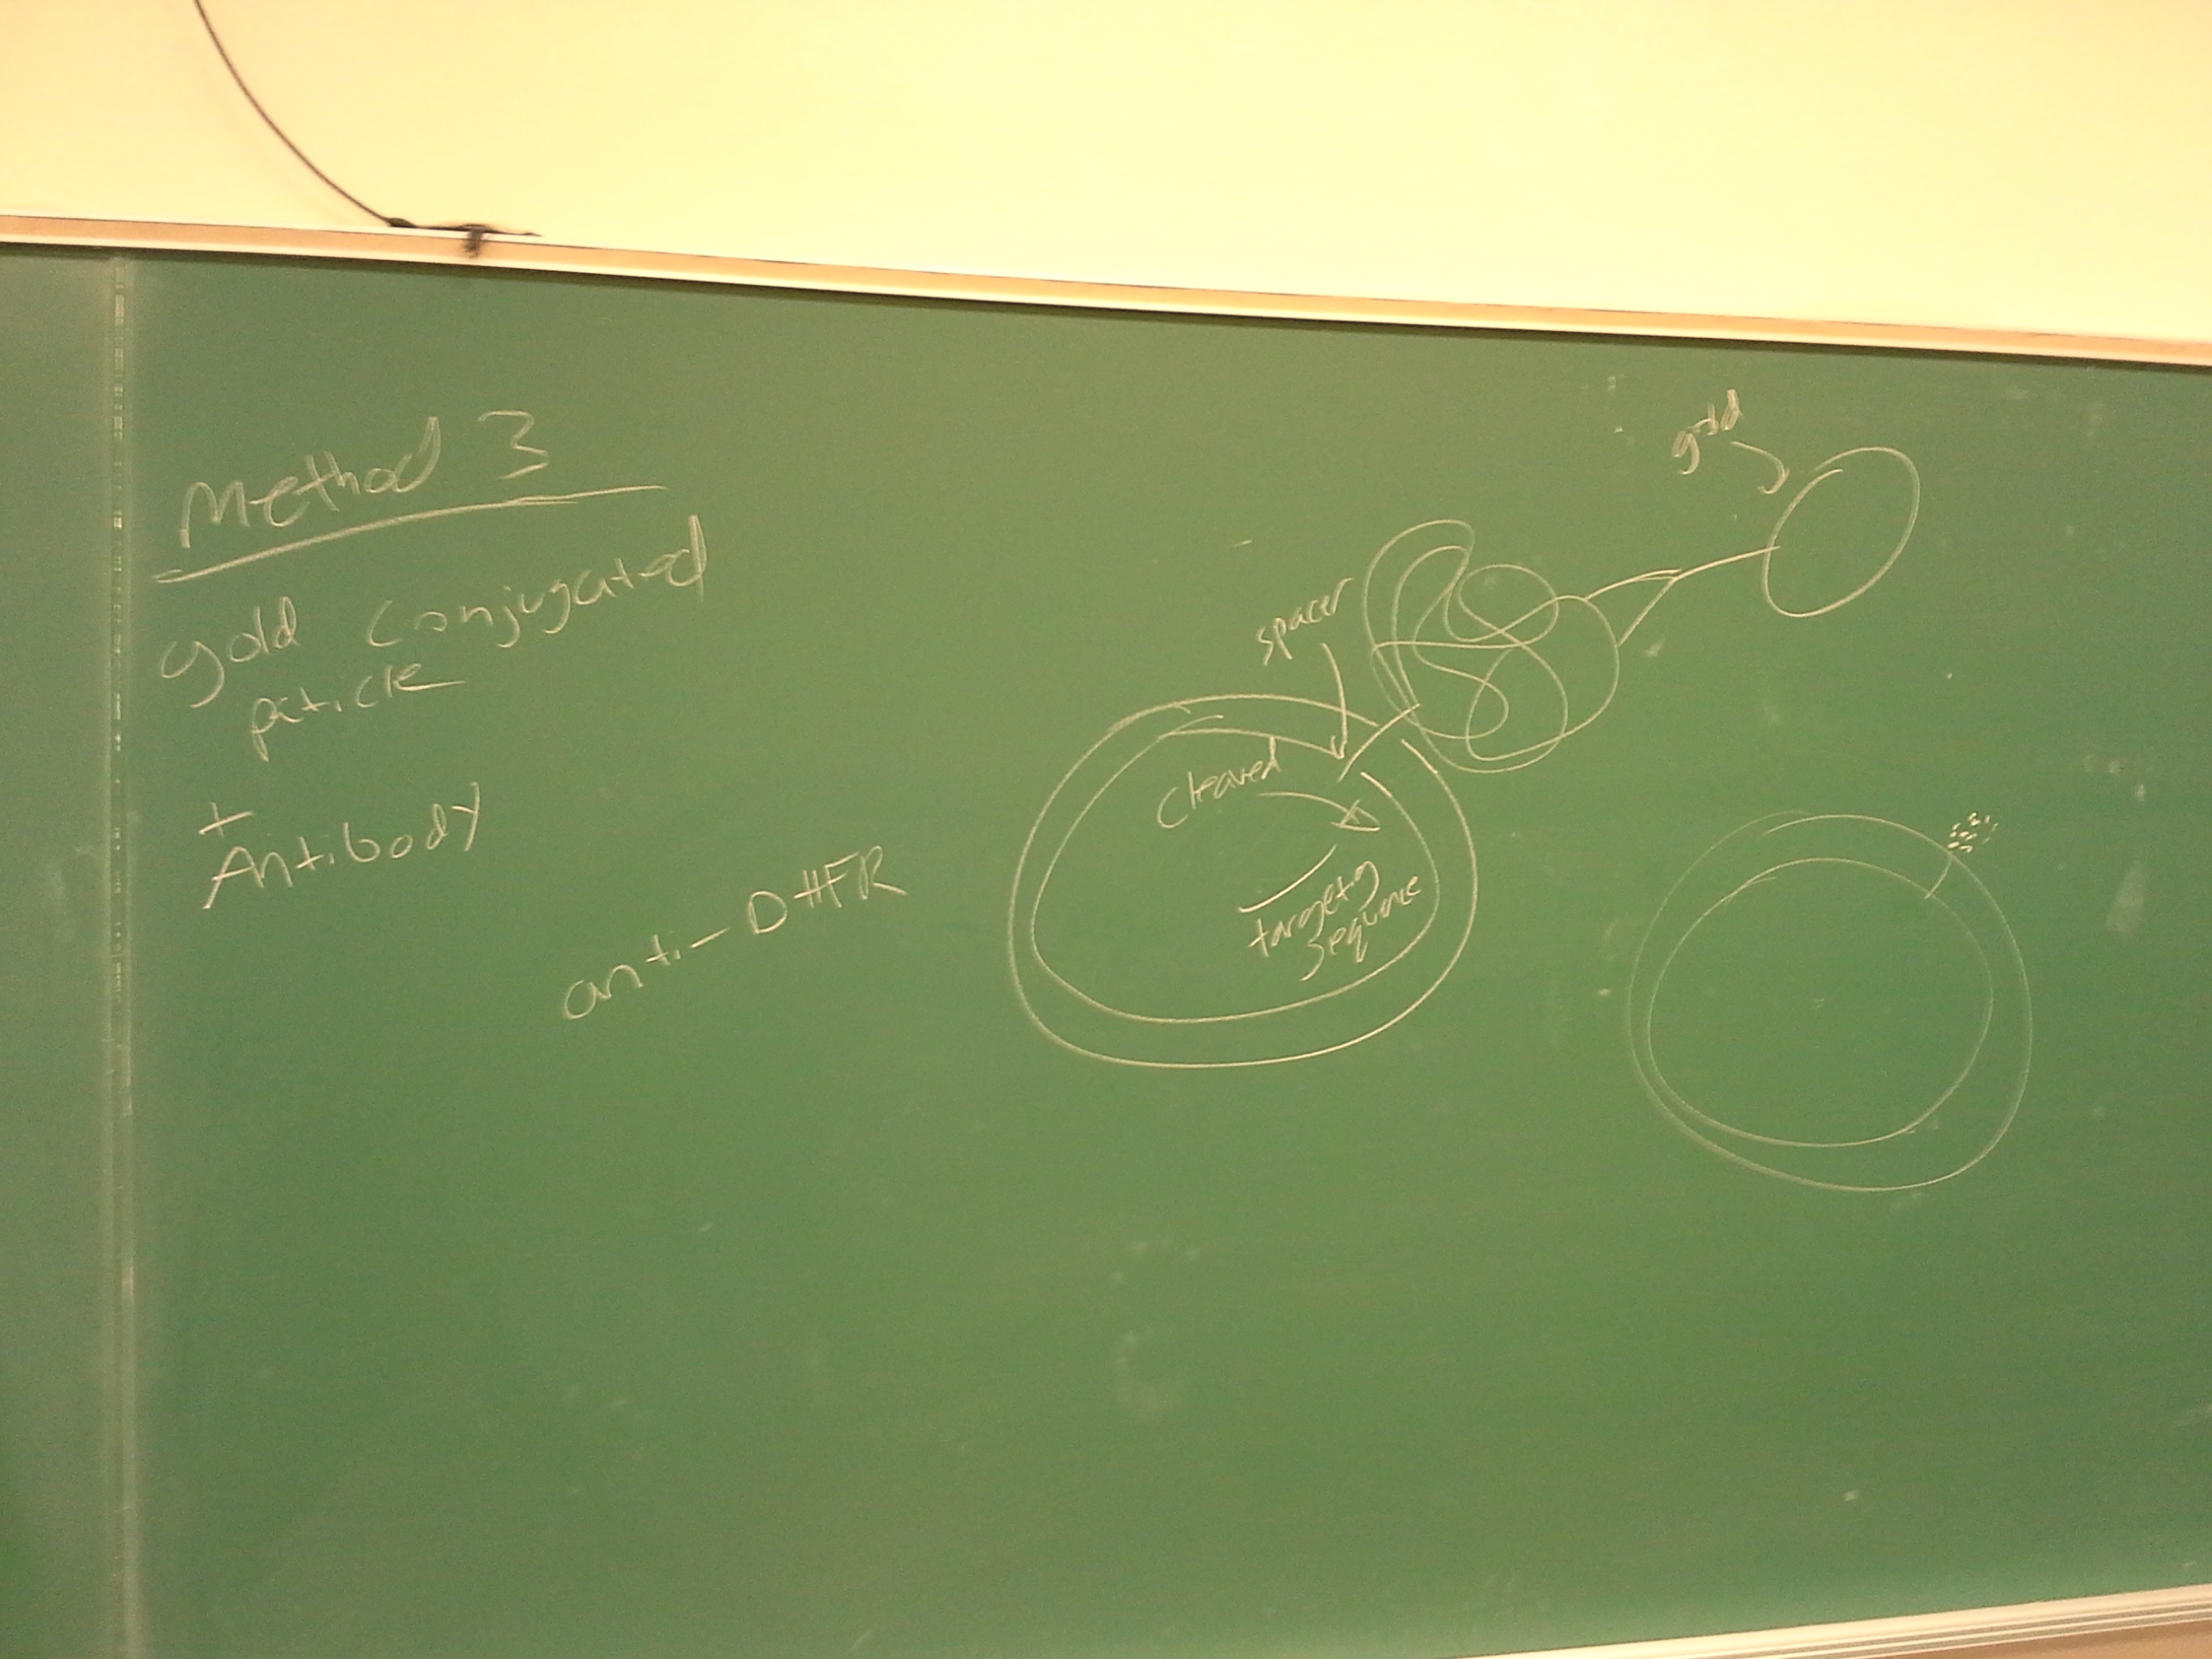 Method 3
gold conjugated
paticle
+
Antibody
anti-DHFR
gold
spacer
cleaved
targetg
sequence